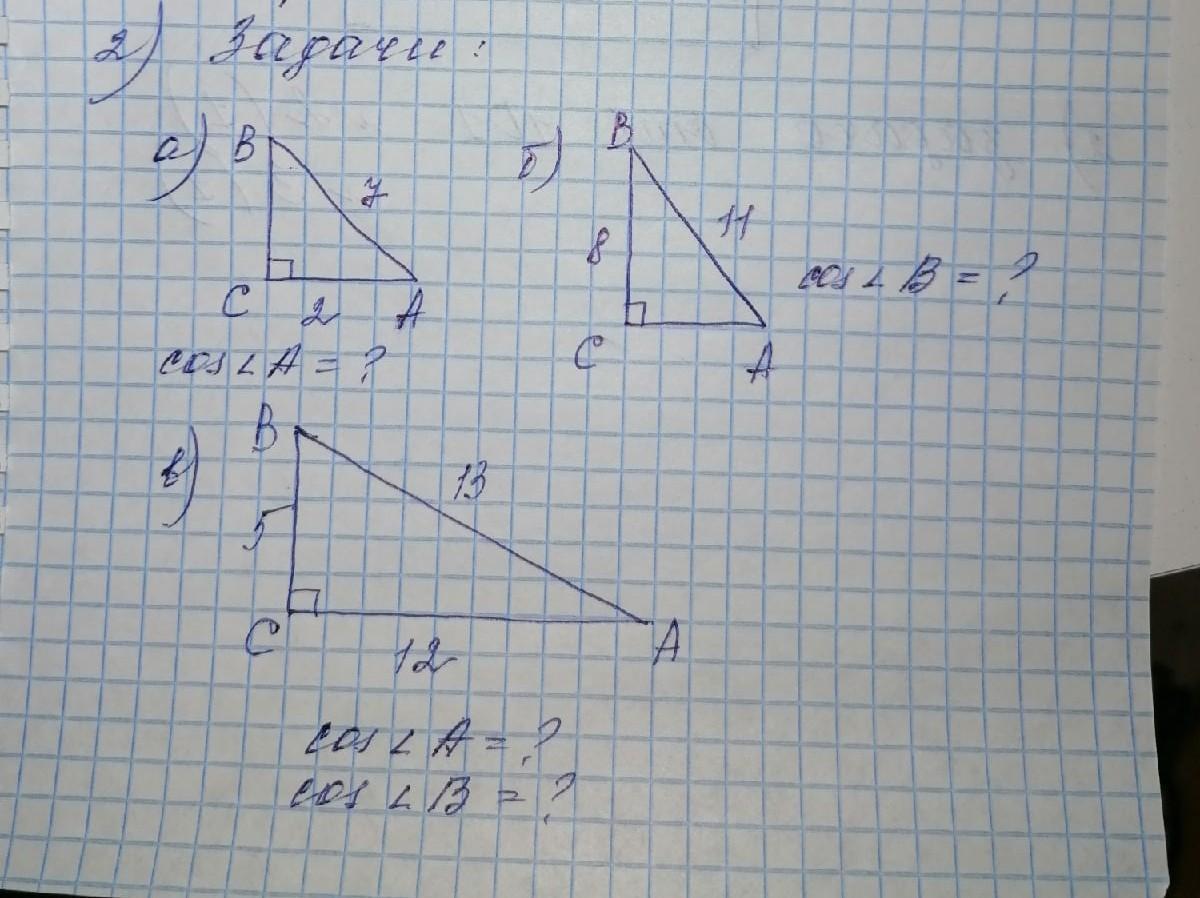 2) Задачи:
а) B 7 C 2 A
cos∠A = ?
б) B 8 11 C A
cos∠B = ?
в) B 5 13 C 12 A
cos∠A = ?
cos∠B = ?